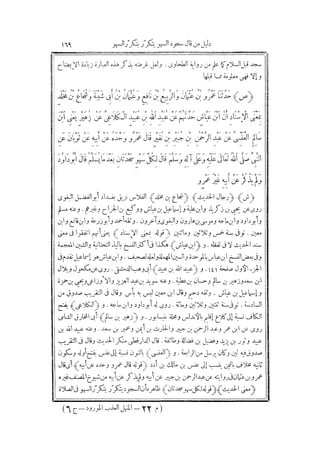 دليل من قال سجود السهو يتكرّر بتكرّر السهو ١٦٩
سجد قبل السلام كما علم من رواية الطحاوى . ولعل غرضه بذكر هذه العبارة زيادة الإيضاح
وإلا فهى معلومة مما قبلها
﴿ص﴾ حَدَّثَنَا عَمْرُو بْنُ عُثْمَانَ وَالرَّبِيعُ بْنُ نَافِعٍ وَعُثْمَانُ بْنُ أَبِى شَيْبَةَ وَشُجَاعُ بْنُ مَخْلَدٍ
بِمَعْنَى الْإِسْنَادِ أَنَّ ابْنَ عَيَّاشٍ حَدَّثَهُمْ عَنْ عُبَيْدِ اللهِ بْنِ عُبَيْدٍ الْكَلَاعِى عَنْ زُهَيْرٍ يَعْنِى ابْنَ
سَالِمٍ الْعَنْسِىَّ عَنْ عَبْدِ الرَّحْمٰنِ بْنِ جُبَيْرِ بْنِ نُفَيْرٍ قَالَ عَمْرٌو وَحْدَهُ عَنْ أَبِيهِ عَنْ ثَوْبَانَ عَنِ
النَّبِىِّ صَلَّى اللهُ تَعَالَى عَلَيْهِ وَعَلَى آلِهِ وَسَلَّمَ قَالَ لِكُلِّ سَهْوٍ سَجْدَتَانِ بَعْدَ مَا يُسَلِّمُ قَالَ أَبُو دَاوُدَ
وَلَمْ يَذْكُرْ عَنْ أَبِيهِ غَيْرُ عَمْرٍو
﴿ش﴾ ﴿رجال الحديث﴾ ﴿شجاع بن مخلد﴾ الفلاس نزيل بغداد أبو الفضل البغوى
روى عن يحيى بن زكريا وابن علية وإسماعيل بن عياش ووكيع بن الجراح وغيرهم . وعنه مسلم
وأبو داود وابن ماجه وموسى بن هارون والبغوى وآخرون . وثقه أحمد وأبو زرعة وابن قانع وابن
معين . توفى سنة خمس وثلاثين ومائتين. و ﴿قوله بمعنى الإسناد﴾ يعنى أنهم اتفقوا فى معنى
سند الحديث لا فى لفظه. و ﴿ابن عياش﴾ هكذا فى أكثر النسخ بالياء التحتانية والشين المعجمة
وفى بعض النسخ ابن عباس بالموحدة والسين المهملة ولعله تصحيف. وابن عياش هو إسماعيل تقدم فى
الجزء الأول صفحة ١٤١. و ﴿عبيد الله بن عبيد﴾ أبى وهب الدمشقى . روى عن مكحول وبلال
ابن سعد وزهير بن سالم وحسان بن عطية . وعنه سويد بن عبد العزيز والأوزاعى ويحيى بن حمزة
وإسماعيل بن عياش . وثقه دحيم وقال ابن معين ليس به بأس وقال فى التقريب صدوق من
السادسة . توفى سنة ثنتين وثلاثين ومائة . روى له أبو داود وابن ماجه . و ﴿الكلاعى﴾ بفتح
الكاف نسبة إلى كلاع إقليم بالأندلس ومحلة بنيسابور . و ﴿زهير بن سالم﴾ أبى المخارق الشامى
روى عن ابن عمر وعبد الرحمن بن جبير والحارث بن أيمن وعمير بن سعد . وعنه عبيد الله بن
عبيد وثور بن يزيد وفضيل بن فضالة وطائفة . قال الدارقطنى منكر الحديث وقال فى التقريب
صدوق فيه لين وكان يرسل من الرابعة . و ﴿العنسى﴾ بالنون نسبة إلى عنس بفتح أوله وسكون
ثانيه مخلاف باليمن ينسب إلى عنس بن مالك بن أدد ﴿قوله قال عمرو وحده عن أبيه﴾ أى قال
عمرو بن عثمان فى روايته عن عبد الرحمن بن جبير عن أبيه ولم يذكر عن أبيه من شيوخ المصنف غيره
﴿معنى الحديث﴾ ﴿قوله لكل سهو سجدتان﴾ ظاهره أن السجود يتكرّر بتكرّر السهو فى الصلاة
(م ٢٢ – المنهل العذب المورود – ج ٦)